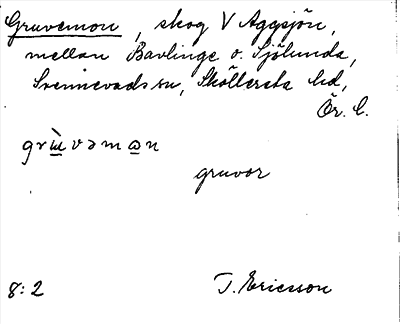 Gruvemon, skog V Aggsjön,
mellan Bavlinge o. Sjölunda,
Svennevads sn, Sköllersta hd,
Ör. l.
grùvəman
gruvor
8:2 T. Ericsson